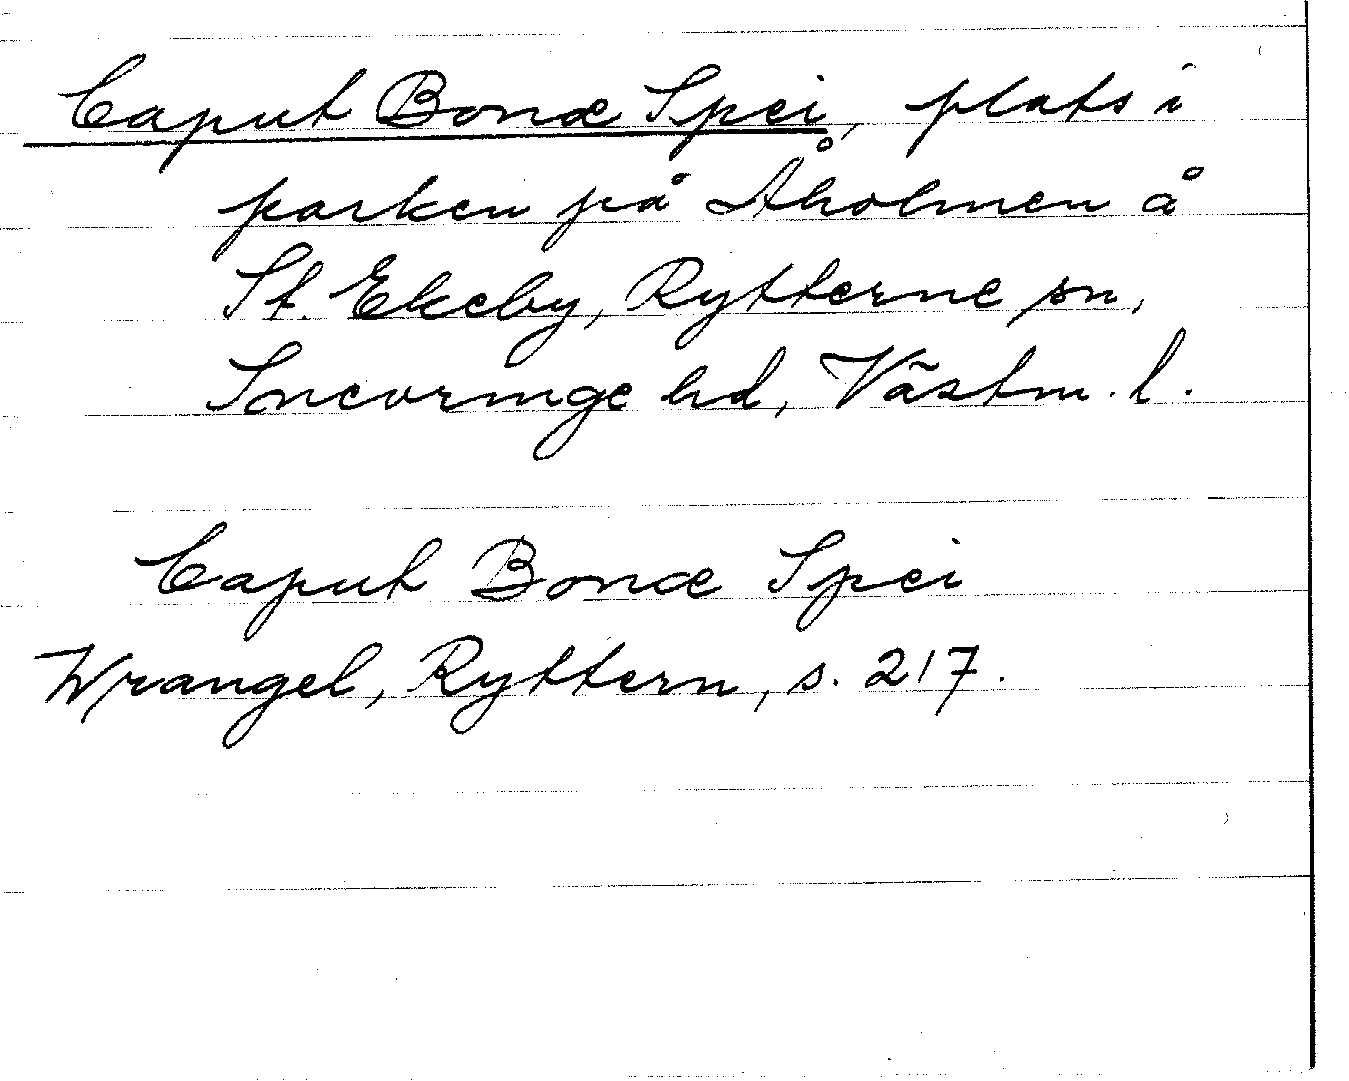 Caput Bonæ Spei, plats i
parken på Åholmen å
St. Ekeby, Rytterne sn,
Snevringe hd, Västm. l.
Caput Bonæ Spei
Wrangel, Ryttern, s. 217.